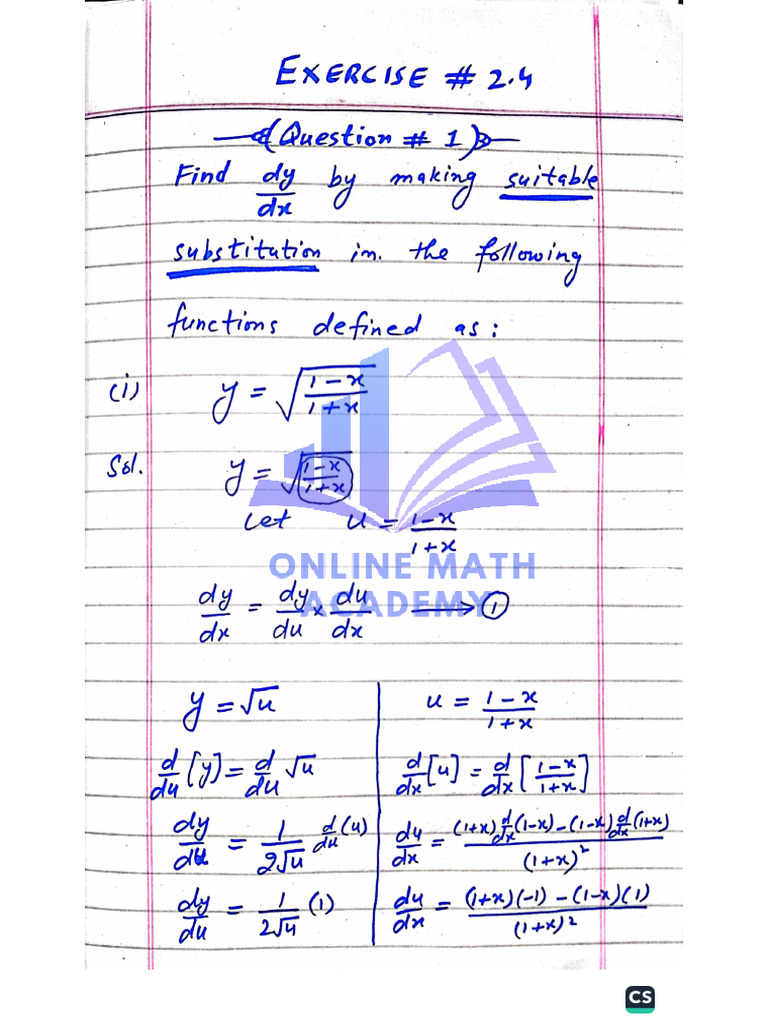 EXERCISE # 2.4
(Question # 1)
Find dy/dx by making suitable
substitution in. the following
functions defined as:
(i) y = √((1-x)/(1+x))
Sol. y = √((1-x)/(1+x))
Let u = (1-x)/(1+x)
ONLINE MATH
ACADEMY
dy/dx = dy/du × du/dx → ①
y = √u
d/du [y] = d/du √u
dy/du = 1/(2√u) d/du (u)
dy/du = 1/(2√u) (1)
u = (1-x)/(1+x)
d/dx [u] = d/dx [(1-x)/(1+x)]
du/dx = ((1+x) d/dx (1-x) - (1-x) d/dx (1+x))/(1+x)²
du/dx = ((1+x)(-1) - (1-x)(1))/(1+x)²
CS